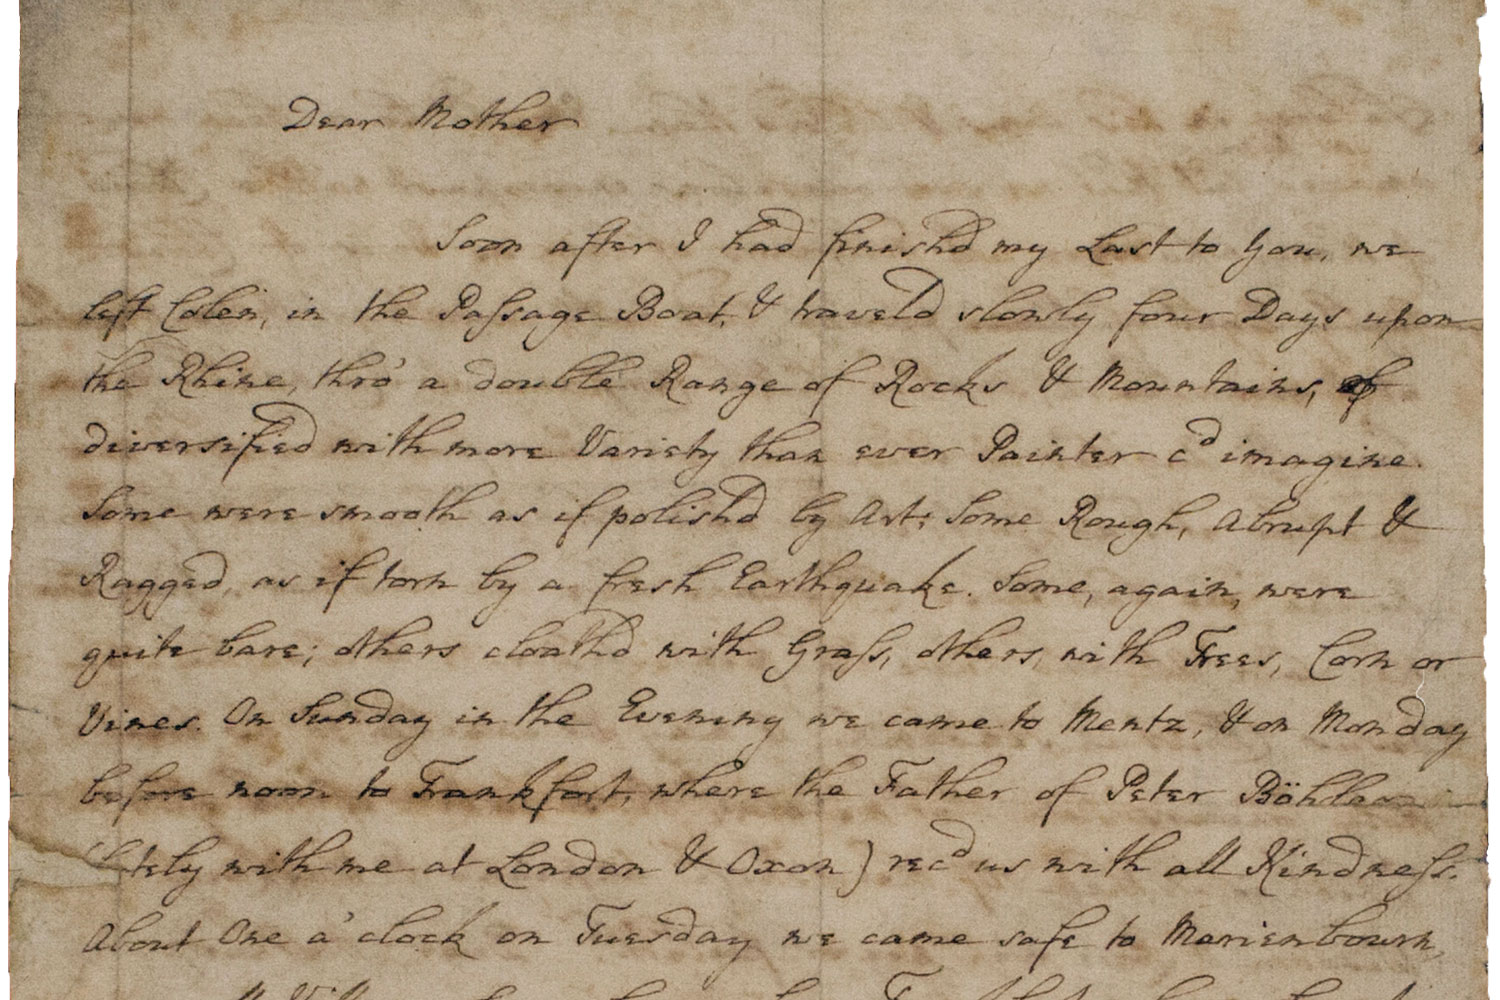 Dear Mother
Soon after I had finish'd my Last to You, we
left Colen, in the Passage Boat, & travel'd slowly four Days upon
the Rhine, thro' a double Range of Rocks & Mountains, of
diversified with more Variety than ever Painter cd imagine.
Some were smooth as if polish'd by Art; Some Rough, Abrupt &
Ragged, as if torn by a fresh Earthquake. Some, again, were
quite bare; others cloath'd with Grass, others, with Trees, Corn or
Vines. On Sunday in the Evening we came to Mentz, & on Monday
before noon to Frankfort, where the Father of Peter
with me at London & Oxon) recd us with all Kindness.
About One a'clock on Tuesday we came safe to Marienbourn,